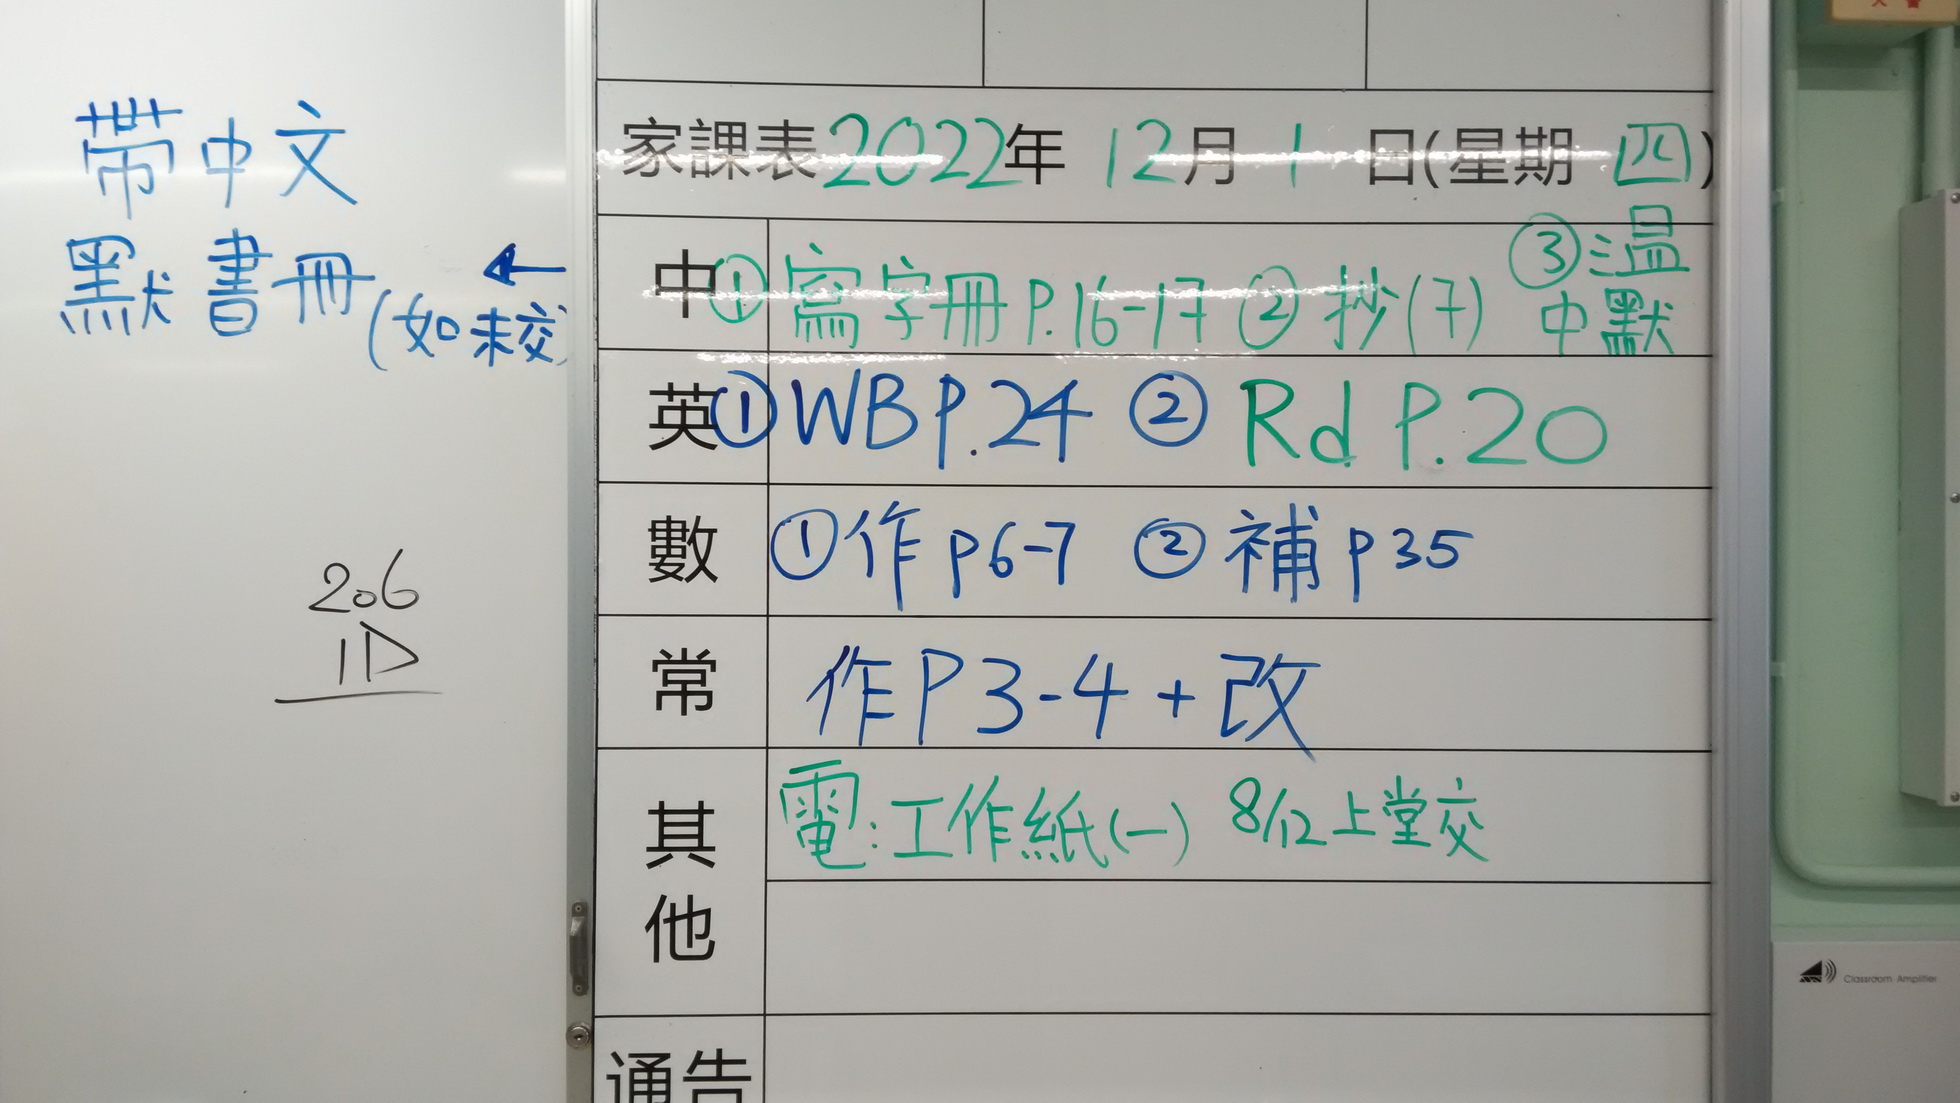 帶中文
默書冊
(如未交)
206
1D
家課表2022年 12月 1 日(星期 四)
中 ① 寫字冊 P.16-17 ② 抄(7) ③ 溫中默
英 ① WB P.24 ② Rd P.20
數 ① 作 p6-7 ② 補 p35
常 作 P 3-4 + 改
其他 電:工作紙(一) 8/12上堂交
通告
Classroom Amplifier